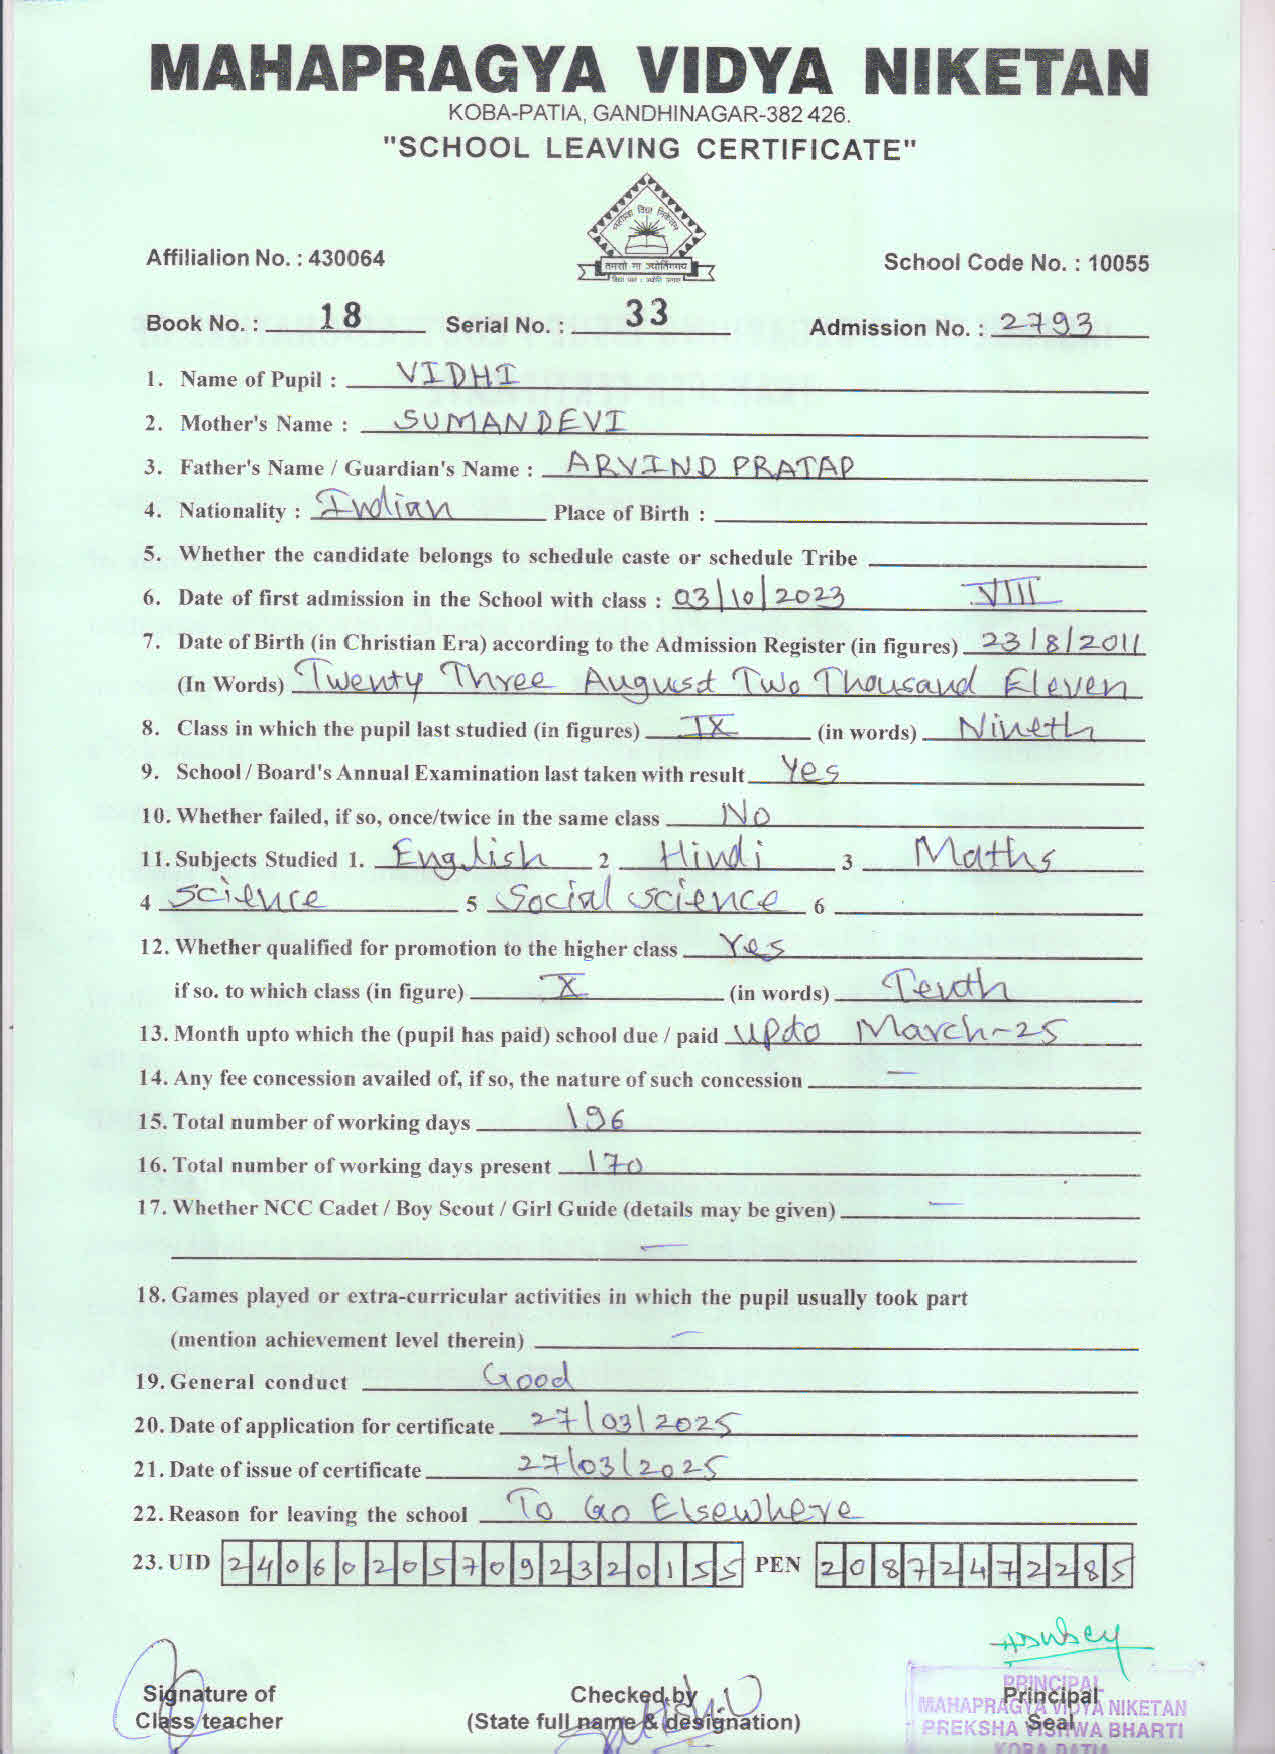 MAHAPRAGYA VIDYA NIKETAN
KOBA-PATIA, GANDHINAGAR-382 426.
"SCHOOL LEAVING CERTIFICATE"
महाप्रज्ञ विद्या निकेतन
तमसो मा ज्योतिर्गमय
Affilialion No. : 430064 School Code No. : 10055
Book No. : 18 Serial No. : 33 Admission No. : 2793
1. Name of Pupil : VIDHI
2. Mother's Name : SUMANDEVI
3. Father's Name / Guardian's Name : ARVIND PRATAP
4. Nationality : Indian Place of Birth :
5. Whether the candidate belongs to schedule caste or schedule Tribe
6. Date of first admission in the School with class : 03/10/2023 VIII
7. Date of Birth (in Christian Era) according to the Admission Register (in figures) 23/8/2011
(In Words) Twenty Three August Two Thousand Eleven
8. Class in which the pupil last studied (in figures) IX (in words) Nineth
9. School / Board's Annual Examination last taken with result Yes
10. Whether failed, if so, once/twice in the same class No
11. Subjects Studied 1. English 2 Hindi 3 Maths
4 Science 5 Social science 6
12. Whether qualified for promotion to the higher class Yes
if so. to which class (in figure) X (in words) Tenth
13. Month upto which the (pupil has paid) school due / paid upto March-25
14. Any fee concession availed of, if so, the nature of such concession —
15. Total number of working days 196
16. Total number of working days present 170
17. Whether NCC Cadet / Boy Scout / Girl Guide (details may be given) —
—
18. Games played or extra-curricular activities in which the pupil usually took part
(mention achievement level therein) —
19. General conduct Good
20. Date of application for certificate 27/03/2025
21. Date of issue of certificate 27/03/2025
22. Reason for leaving the school To Go Elsewhere
23. UID 240602057092320155 PEN 20872472285
Signature of Checked by Principal
Class teacher (State full name & designation) Seal
PRINCIPAL
MAHAPRAGYA VIDYA NIKETAN
PREKSHA VISHWA BHARTI
KOBA PATIA